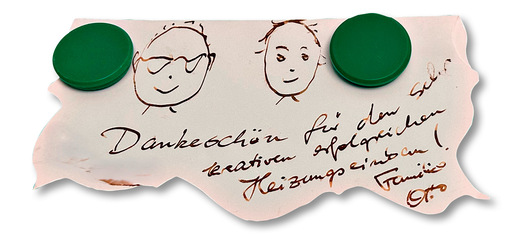 Dankeschön für den sehr
kreativen erfolgreichen
Heizungseinbau!
Familie
Otto